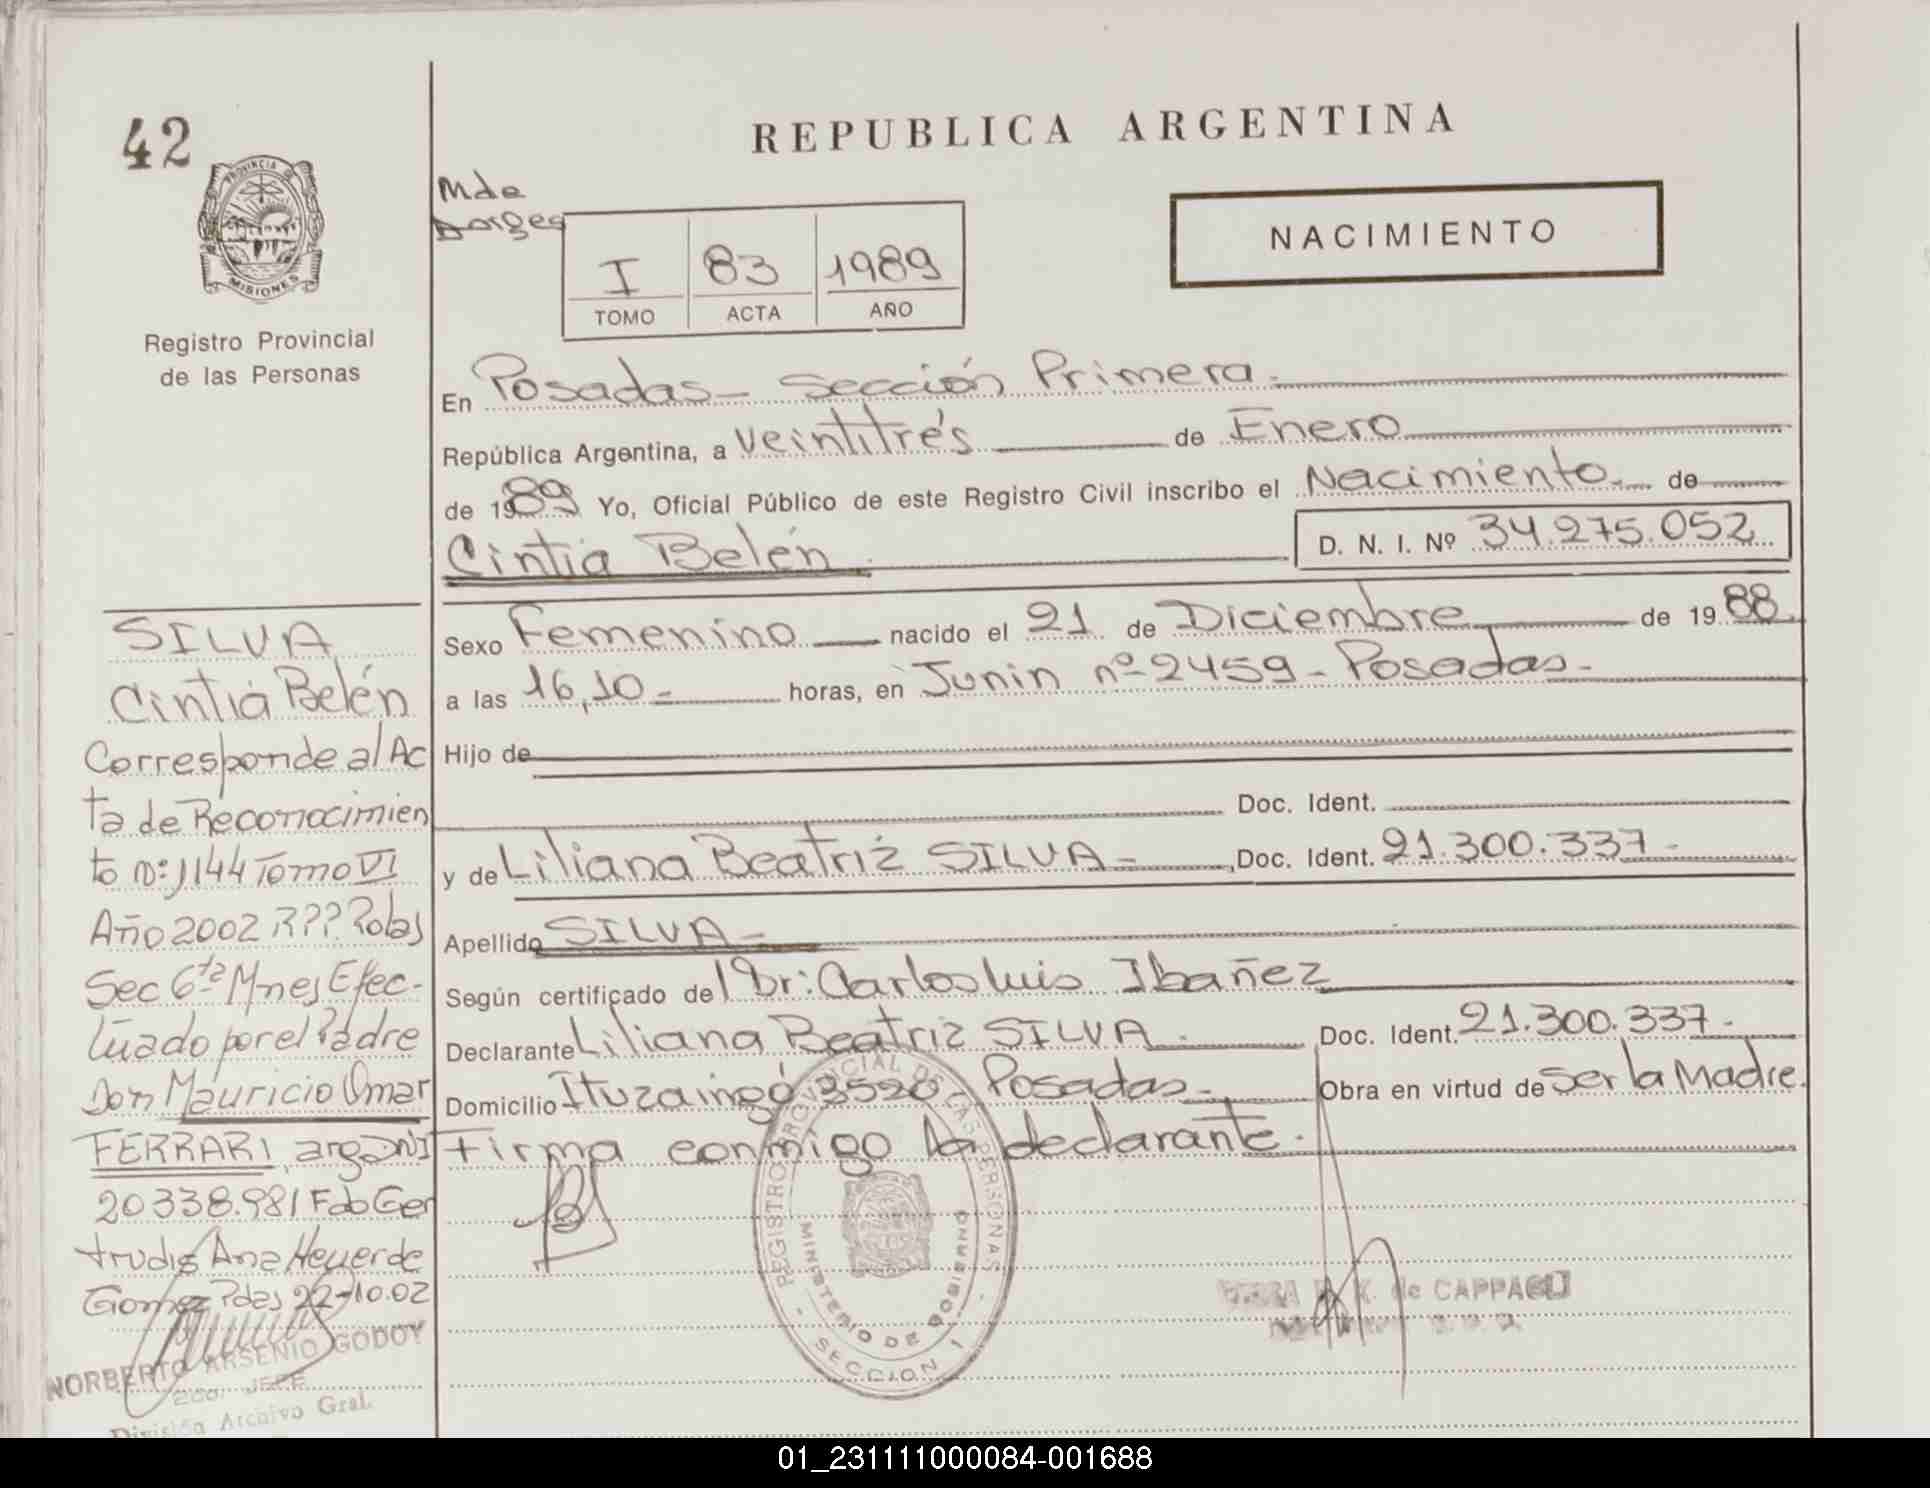 42
PROVINCIA DE
MISIONES
Registro Provincial
de las Personas
SILVA
Cintia Belén
Corresponde al Ac
ta de Reconocimien
to Nº: 1144 Tomo VI
Año 2002 R?? Pdas
Sec 6ta Mnes Efec-
tuado por el Padre
Don Mauricio Omar
FERRARI, arg DNI
20338.981 Fdo Ger
trudis Ana Heyerde
Gomez Pdas 22-10.02
NORBERTO ARSENIO GODOY
2do JEFE
División Archivo Gral.
REPUBLICA ARGENTINA
Mde
Borges
I 83 1989
TOMO ACTA AÑO
NACIMIENTO
En Posadas - Sección Primera.
República Argentina, a Veintitrés de Enero
de 1989 Yo, Oficial Público de este Registro Civil inscribo el Nacimiento de
Cintia Belén. D. N. I. Nº 34.275.052
Sexo Femenino nacido el 21 de Diciembre de 1988
a las 16,10 - horas, en Junin nº 2459 - Posadas -
Hijo de
Doc. Ident.
y de Liliana Beatriz SILVA - , Doc. Ident. 21.300.337 -
Apellido SILVA -
Según certificado del Dr: Carlos Luis Ibañez
Declarante Liliana Beatriz SILVA - Doc. Ident. 21.300.337 -
Domicilio Ituzaingó 3520 - Posadas - Obra en virtud de Ser la Madre.
Firma conmigo la declarante.
REGISTRO PROVINCIAL DE LAS PERSONAS
MINISTERIO DE GOBIERNO
SECCION 1
de CAPPAGLI
01_231111000084-001688